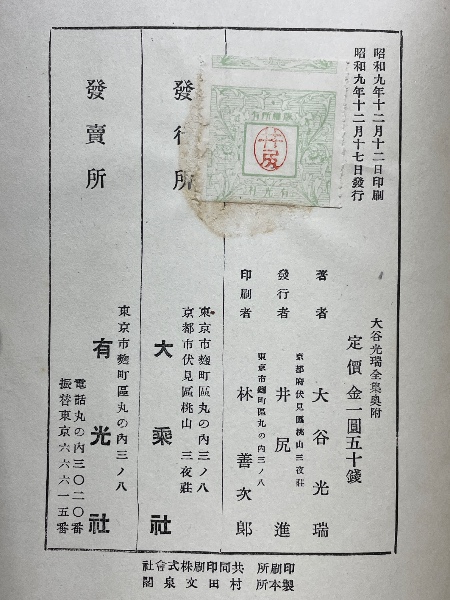 昭和九年十二月十二日印刷
昭和九年十二月十七日發行
版權所有
井尻
有光社
大谷光瑞全集奥附
定價金一圓五十錢
著者
京都府伏見區桃山三夜荘
大谷光瑞
發行者
東京市麹町區丸の内三ノ八
井尻進
印刷者
林善次郎
發行所
東京市麹町區丸の内三ノ八
京都市伏見區桃山三夜荘
大乘社
發賣所
東京市麹町區丸の内三ノ八
有光社
電話丸の内三〇二〇番
振替東京六六六一五番
印刷所 共同印刷株式會社
製本所 村田文泉閣